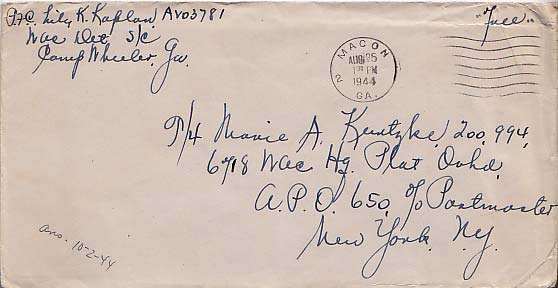 Pfc. Lily K. Kaplan, AV03781
Wac Det. S/C
Camp Wheeler, Ga.
MACON
2
AUG 25
1944
GA.
"Free"
T/4 Marie A. Kuntzke, 200,994,
6718 Wac Hq. Plat Ovhd,
A.P.O. 650, c/o Postmaster
New York, N.Y.
ans. 10-2-44